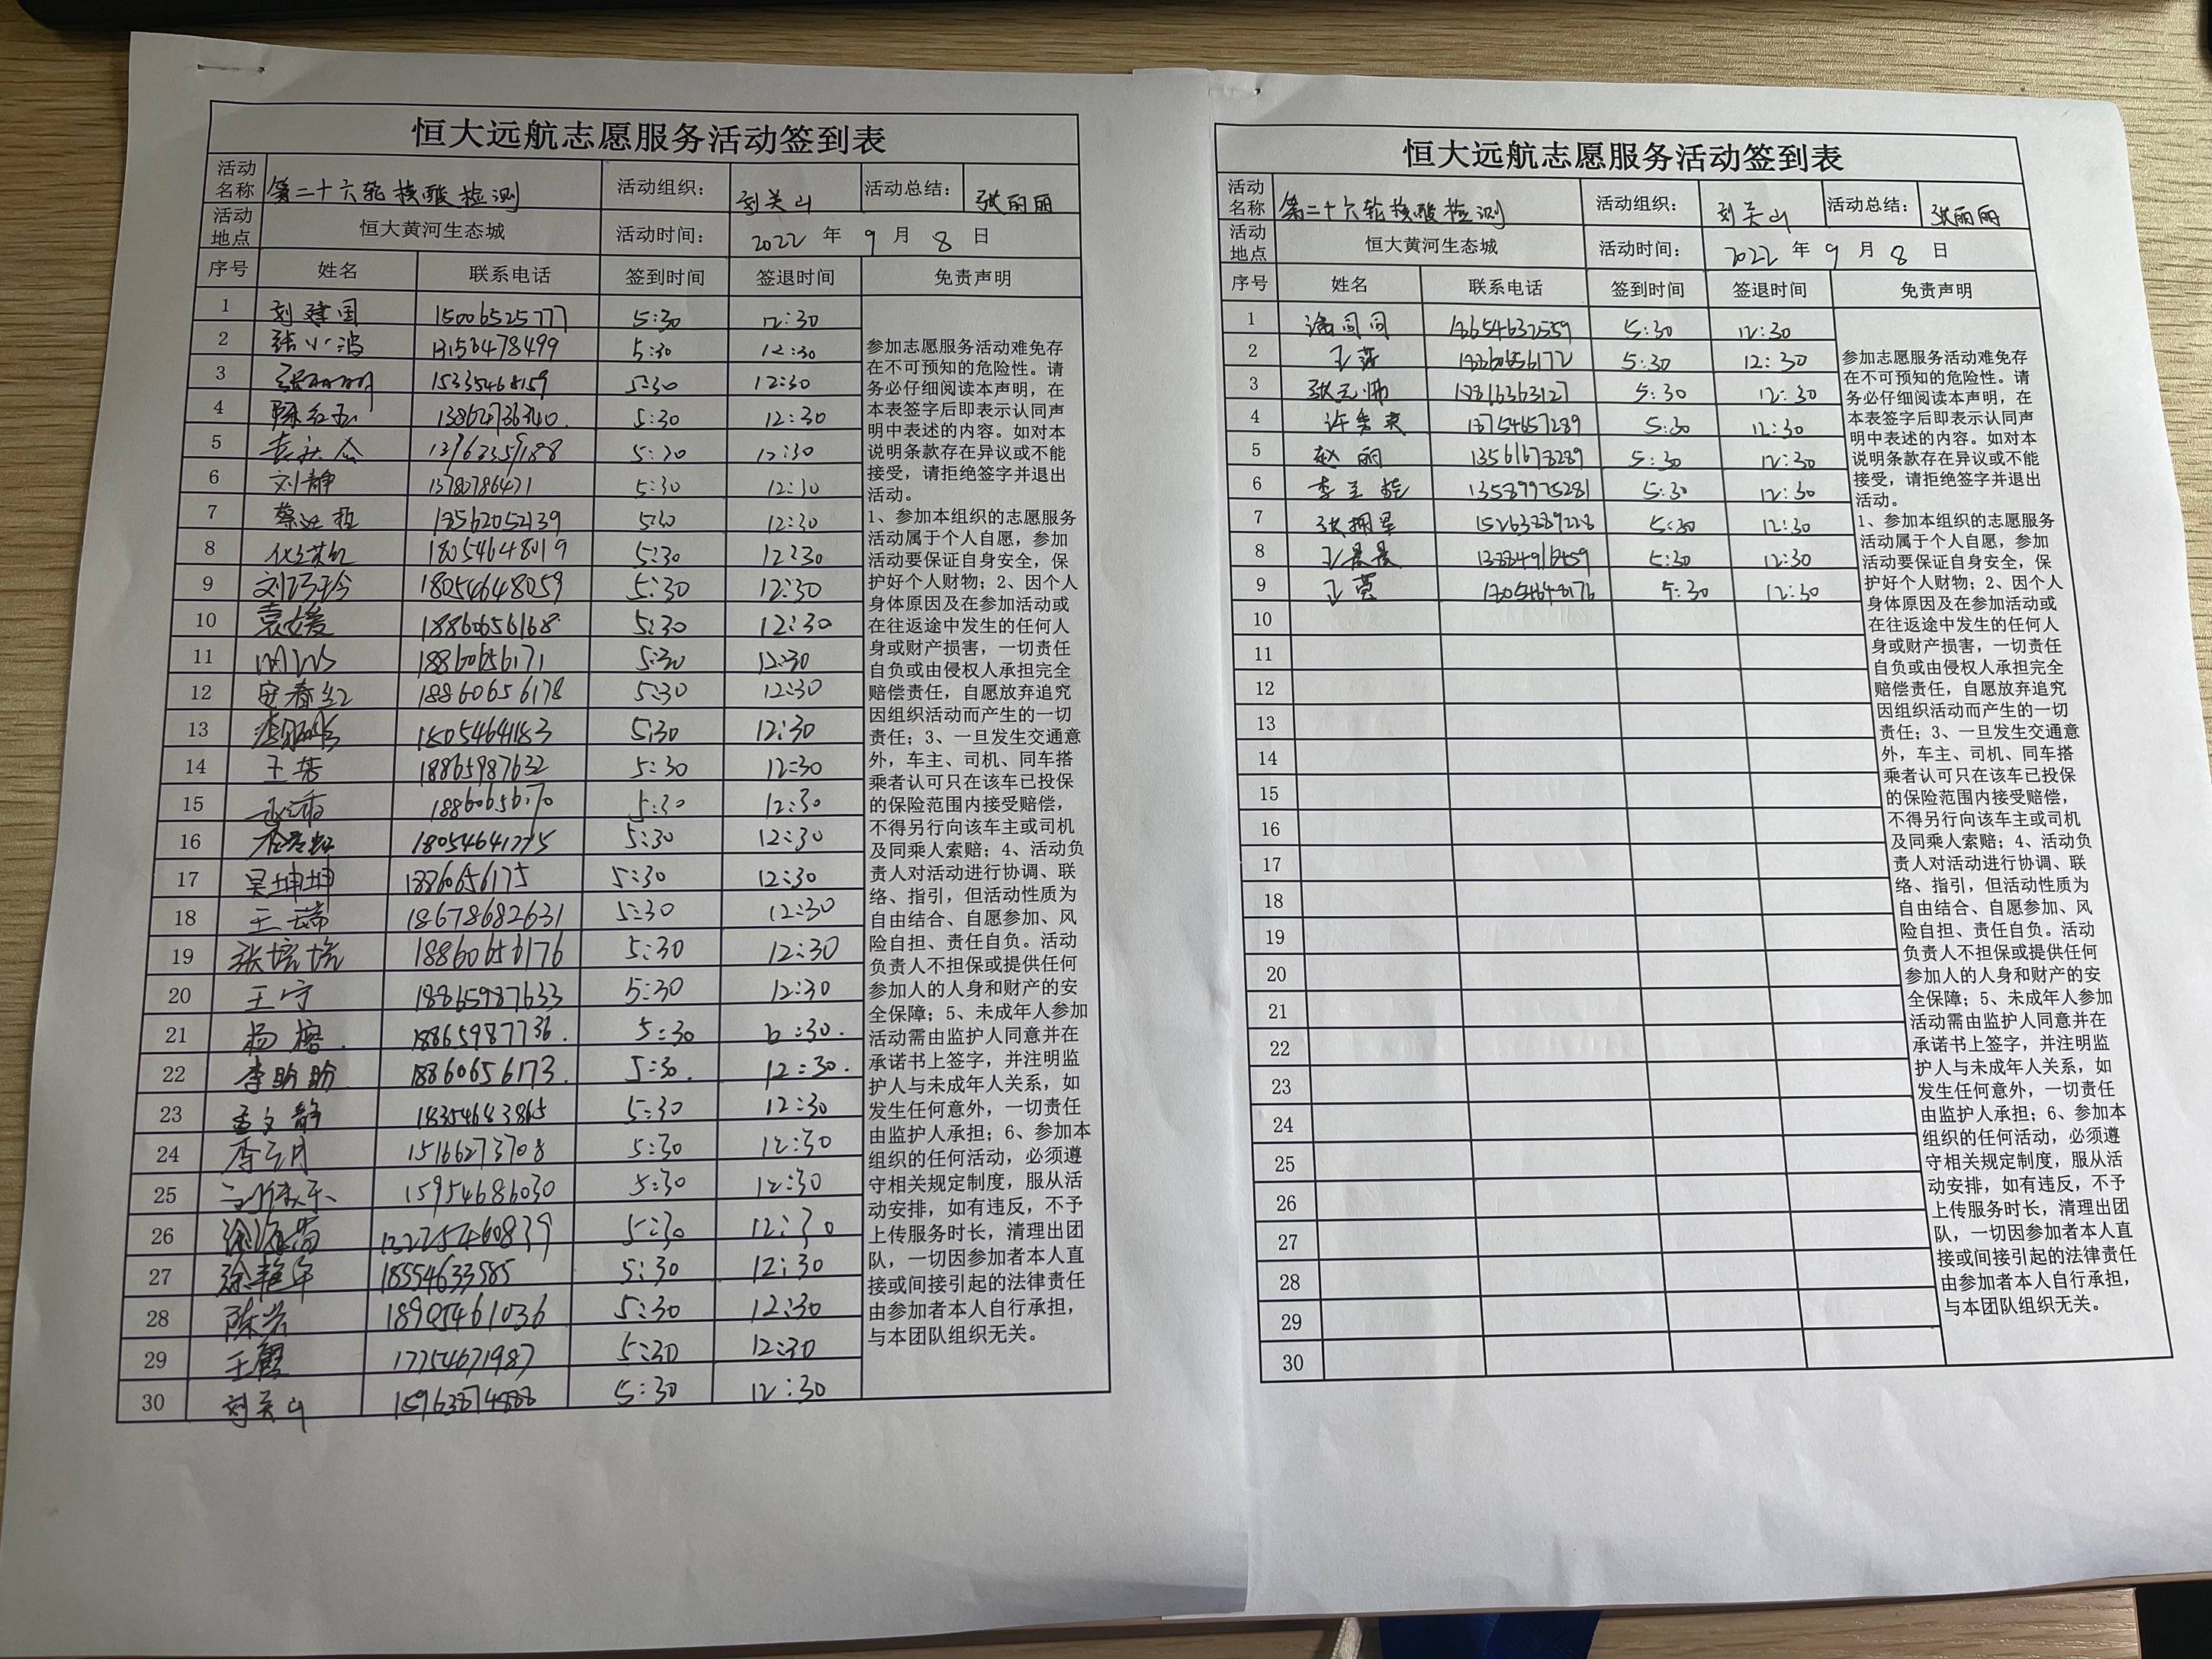 恒大远航志愿服务活动签到表
活动名称 第二十六轮核酸检测 活动组织: 刘关山 活动总结: 张丽丽
活动地点 恒大黄河生态城 活动时间: 2022 年 9 月 8 日
序号 姓名 联系电话 签到时间 签退时间 免责声明
1 刘建国 15006525777 5:30 12:30
2 张小波 13153478499 5:30 12:30
3 15335468159 5:30 12:30
4 13864736340. 5:30 12:30
5 5:30 12:30
6 刘静 13780786471 5:30 12:30
7 18562052139 5:30 12:30
8 18054648019 5:30 12:30
9 18054648059 5:30 12:30
10 袁媛 18860656168 5:30 12:30
11 18860656171 5:30 12:30
12 安春红 18860656178 5:30 12:30
13 18054641183 5:30 12:30
14 王芳 18865987632 5:30 12:30
15 18860656170 5:30 12:30
16 5:30 12:30
17 吴坤坤 18860656175 5:30 12:30
18 王瑞 18678682631 5:30 12:30
19 张培培 18860656176 5:30 12:30
20 王宁 18865987633 5:30 12:30
21 杨榕. 18865987736. 5:30 :30.
22 李盼盼. 18860656173. 5:30. 12:30.
23 孟文静 18354683865 5:30 12:30
24 李月 15166273708 5:30 12:30
25 15954686030 5:30 12:30
26 5:30 12:30
27 徐艳军 18554633585 5:30 12:30
28 陈芳 18905461036 5:30 12:30
29 17754671987 5:30 12:30
30 刘关山 15963874888 5:30 12:30
参加志愿服务活动难免存
在不可预知的危险性。请
务必仔细阅读本声明，在
本表签字后即表示认同声
明中表述的内容。如对本
说明条款存在异议或不能
接受，请拒绝签字并退出
活动。
1、参加本组织的志愿服务
活动属于个人自愿，参加
活动要保证自身安全，保
护好个人财物；2、因个人
身体原因及在参加活动或
在往返途中发生的任何人
身或财产损害，一切责任
自负或由侵权人承担完全
赔偿责任，自愿放弃追究
因组织活动而产生的一切
责任；3、一旦发生交通意
外，车主、司机、同车搭
乘者认可只在该车已投保
的保险范围内接受赔偿，
不得另行向该车主或司机
及同乘人索赔；4、活动负
责人对活动进行协调、联
络、指引，但活动性质为
自由结合、自愿参加、风
险自担、责任自负。活动
负责人不担保或提供任何
参加人的人身和财产的安
全保障；5、未成年人参加
活动需由监护人同意并在
承诺书上签字，并注明监
护人与未成年人关系，如
发生任何意外，一切责任
由监护人承担；6、参加本
组织的任何活动，必须遵
守相关规定制度，服从活
动安排，如有违反，不予
上传服务时长，清理出团
队，一切因参加者本人直
接或间接引起的法律责任
由参加者本人自行承担，
与本团队组织无关。
恒大远航志愿服务活动签到表
活动名称 第二十六轮核酸检测 活动组织: 刘关山 活动总结: 张丽丽
活动地点 恒大黄河生态城 活动时间: 2022 年 9 月 8 日
序号 姓名 联系电话 签到时间 签退时间 免责声明
1 5:30 12:30
2 王萍 18860656172 5:30 12:30
3 5:30 12:30
4 18754657289 5:30 12:30
5 赵丽 13561678289 5:30 12:30
6 13589975281 5:30 12:30
7 5:30 12:30
8 王晨晨 5:30 12:30
9 王莫 18054648176 5:30 12:30
10
11
12
13
14
15
16
17
18
19
20
21
22
23
24
25
26
27
28
29
30
参加志愿服务活动难免存
在不可预知的危险性。请
务必仔细阅读本声明，在
本表签字后即表示认同声
明中表述的内容。如对本
说明条款存在异议或不能
接受，请拒绝签字并退出
活动。
1、参加本组织的志愿服务
活动属于个人自愿，参加
活动要保证自身安全，保
护好个人财物；2、因个人
身体原因及在参加活动或
在往返途中发生的任何人
身或财产损害，一切责任
自负或由侵权人承担完全
赔偿责任，自愿放弃追究
因组织活动而产生的一切
责任；3、一旦发生交通意
外，车主、司机、同车搭
乘者认可只在该车已投保
的保险范围内接受赔偿，
不得另行向该车主或司机
及同乘人索赔；4、活动负
责人对活动进行协调、联
络、指引，但活动性质为
自由结合、自愿参加、风
险自担、责任自负。活动
负责人不担保或提供任何
参加人的人身和财产的安
全保障；5、未成年人参加
活动需由监护人同意并在
承诺书上签字，并注明监
护人与未成年人关系，如
发生任何意外，一切责任
由监护人承担；6、参加本
组织的任何活动，必须遵
守相关规定制度，服从活
动安排，如有违反，不予
上传服务时长，清理出团
队，一切因参加者本人直
接或间接引起的法律责任
由参加者本人自行承担，
与本团队组织无关。